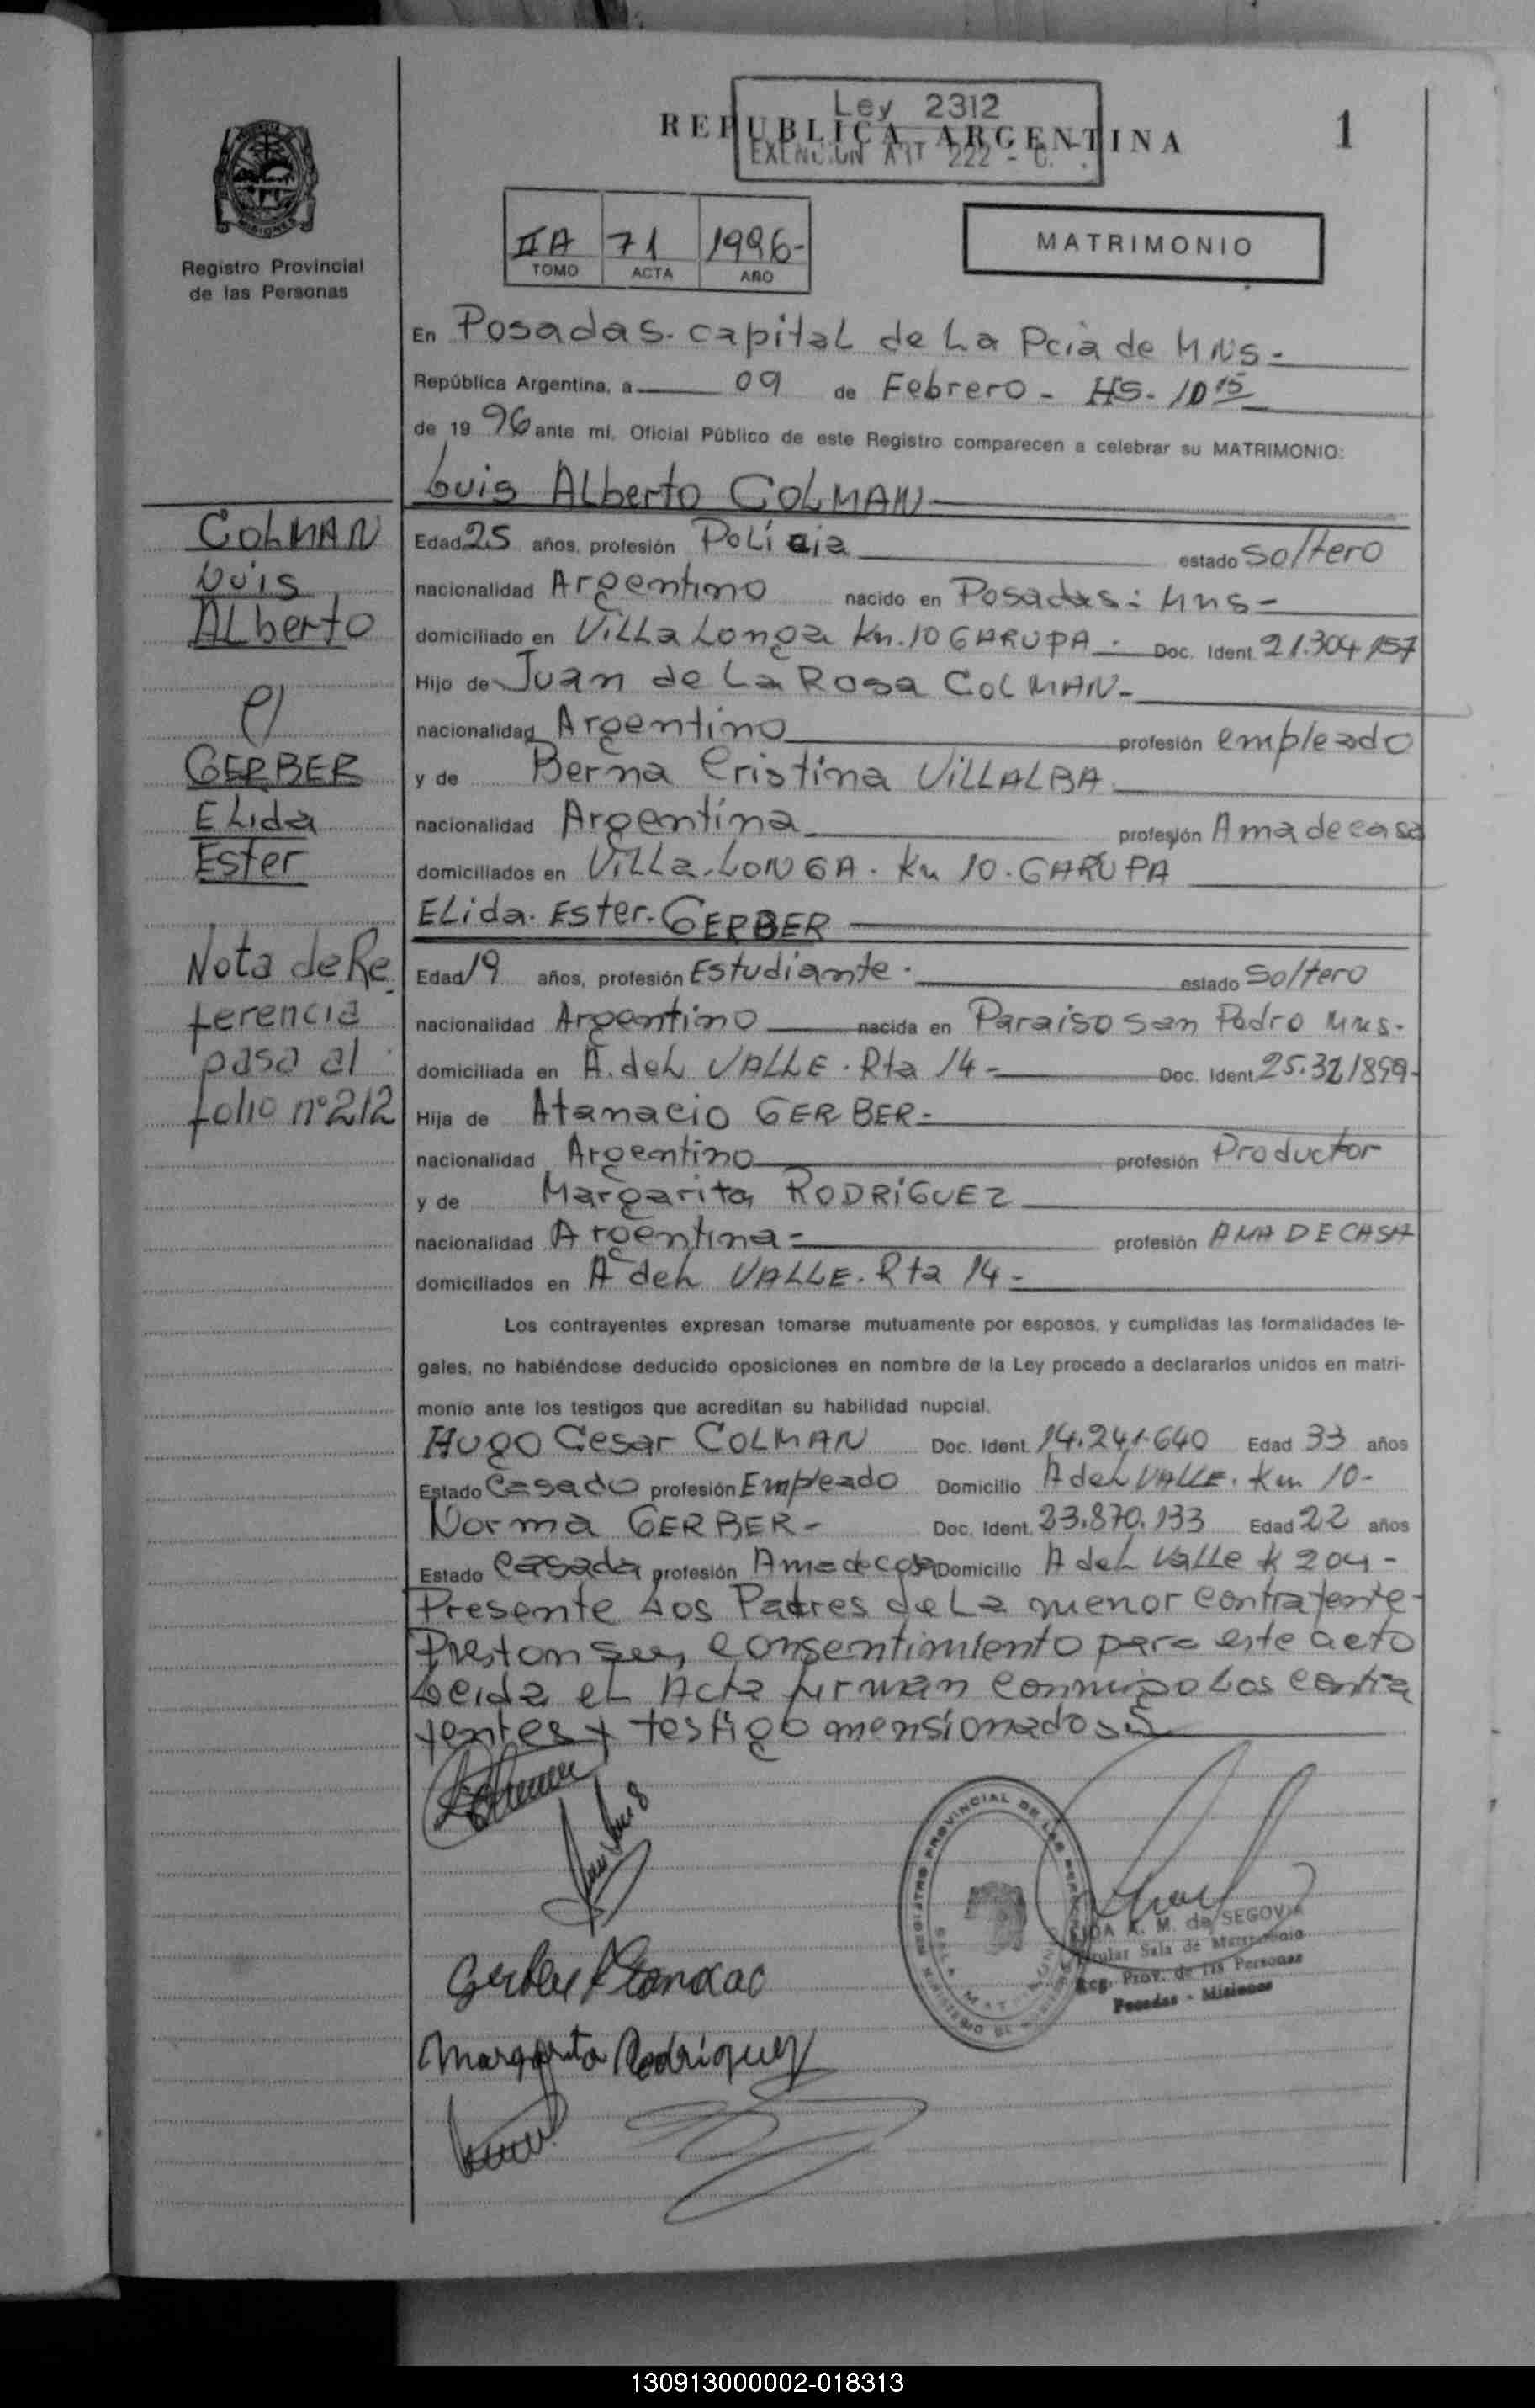 Ley 2312
REPUBLICA ARGENTINA
EXENCION ART 222 - C.
1
IIA 71 1996-
TOMO ACTA AÑO
MATRIMONIO
MISIONES
Registro Provincial
de las Personas
En Posadas. capital de La Pcia de MNS-
República Argentina, a 09 de Febrero - HS. 10 15
de 19 96 ante mí, Oficial Público de este Registro comparecen a celebrar su MATRIMONIO:
Luis Alberto COLMAN
Edad 25 años, profesión Policia estado Soltero
nacionalidad Argentino nacido en Posadas: Mns-
domiciliado en Villa Longa Km. 10 GARUPA. Doc. Ident. 21.304.157
Hijo de Juan de La Rosa COLMAN-
nacionalidad Argentino profesión empleado
y de Berna Cristina VILLALBA
nacionalidad Argentina profesión Ama de casa
domiciliados en Villa-LONGA. Km 10. GARUPA
ELida. Ester. GERBER
Edad 19 años, profesión Estudiante. estado Soltero
nacionalidad Argentino nacida en Paraiso San Pedro Mns.
domiciliada en A. deL VALLE. Rta 14- Doc. Ident. 25.321899-
Hija de Atanacio GERBER-
nacionalidad Argentino profesión Productor
y de Margarita RODRIGUEZ
nacionalidad Argentina- profesión AMA DE CASA
domiciliados en A deL VALLE. Rta 14-
Los contrayentes expresan tomarse mutuamente por esposos, y cumplidas las formalidades le-
gales, no habiéndose deducido oposiciones en nombre de la Ley procedo a declararlos unidos en matri-
monio ante los testigos que acreditan su habilidad nupcial.
Hugo Cesar COLMAN Doc. Ident. 14.241.640 Edad 33 años
Estado Casado profesión Empleado Domicilio A deL VALLE. Km 10-
Norma GERBER- Doc. Ident. 23.870.133 Edad 22 años
Estado Casada profesión Ama de casa Domicilio A deL VaLLe K 204-
Presente Los Padres de La menor contrayente-
Prestan su consentimiento para este acto
Leida eL Acta firman conmigo Los contra
yentes y testigo mensionados
COLMAN
Luis
ALberto
GERBER
ELida
Ester
Nota de Re
ferencia
pasa al
folio nº 212
Gerber Atanacio
Margarita Rodriguez
REGISTRO PROVINCIAL DE LAS PERSONAS
A. M. de SEGOVIA
Titular Sala de Matrimonio
Reg. Prov. de las Personas
Posadas - Misiones
130913000002-018313